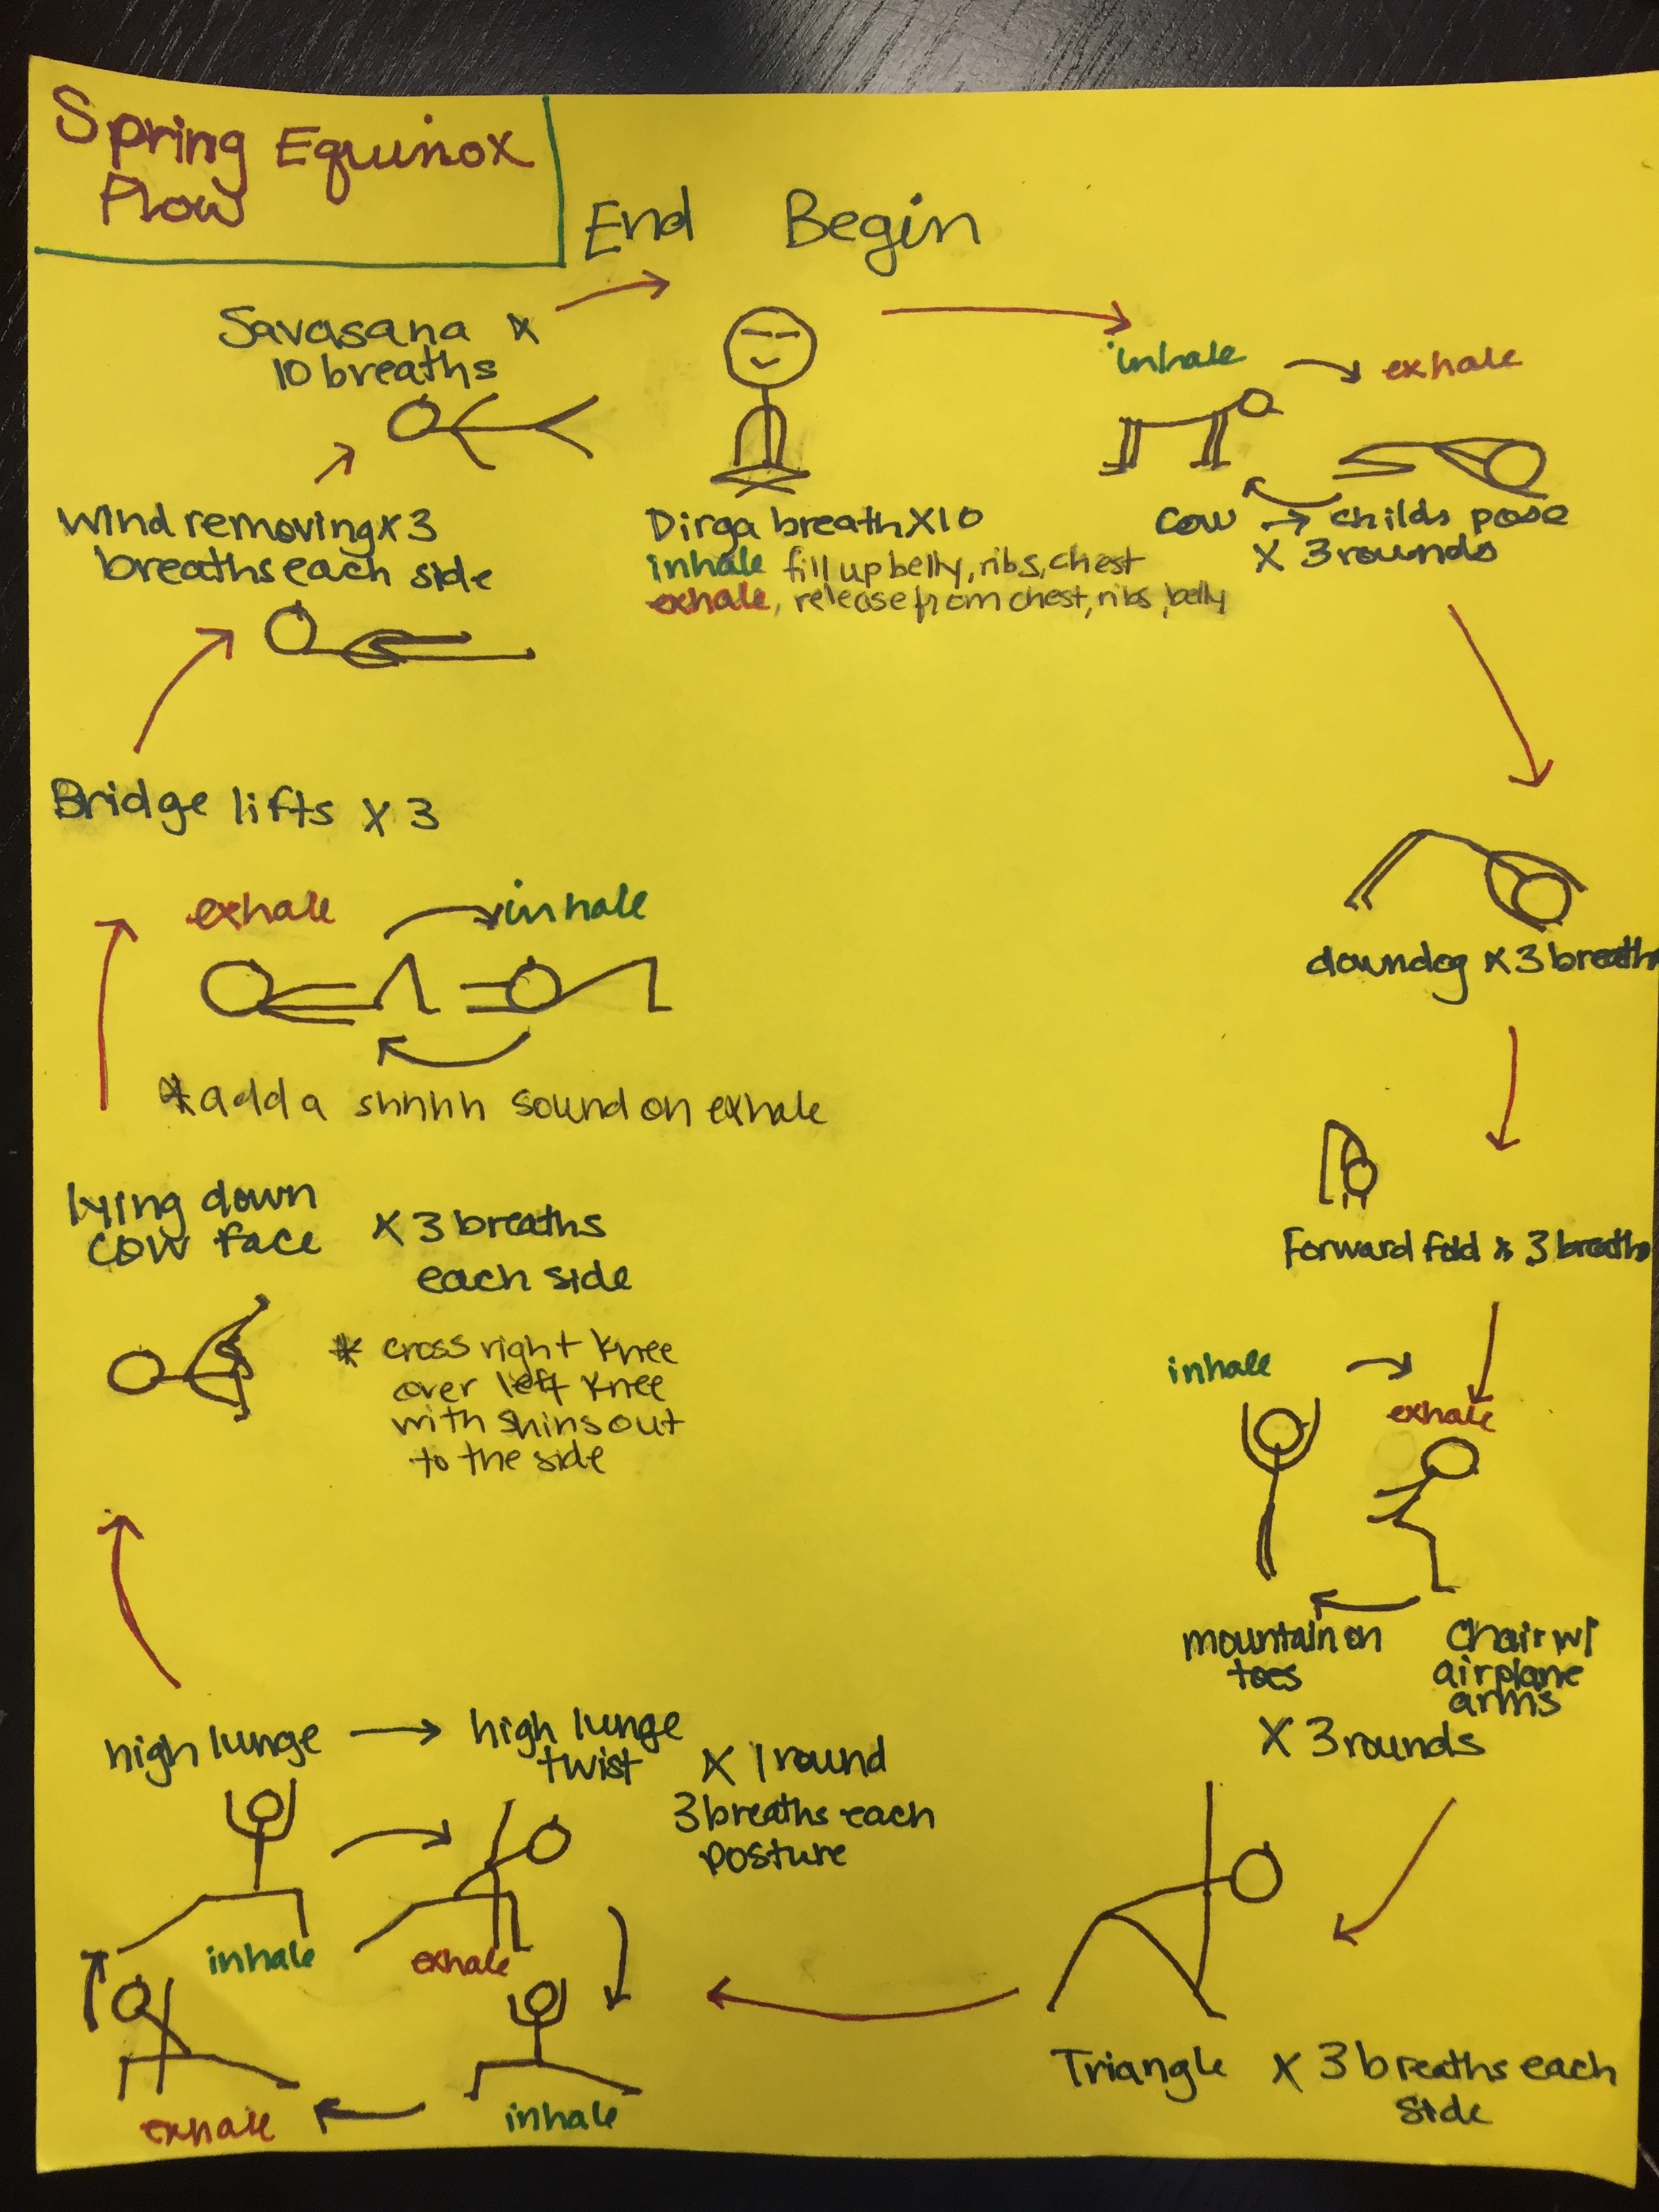 Spring Equinox
Flow
End Begin
Dirga breath X10
inhale fill up belly, ribs, chest
exhale, release from chest, ribs, belly
inhale exhale
cow → childs pose
X 3 rounds
downdog x 3 breath
Forward fold x 3 breaths
inhale
exhale
mountain on
toes
Chair w/
airplane
arms
X 3 rounds
Triangle X 3 breaths each
side
high lunge → high lunge
twist
X 1 round
3 breaths each
posture
inhale exhale
exhale inhale
lying down
cow face
X 3 breaths
each side
* cross right knee
over left knee
with shins out
to the side
Bridge lifts X 3
exhale inhale
* add a shhhh sound on exhale
Wind removing x 3
breaths each side
Savasana x
10 breaths